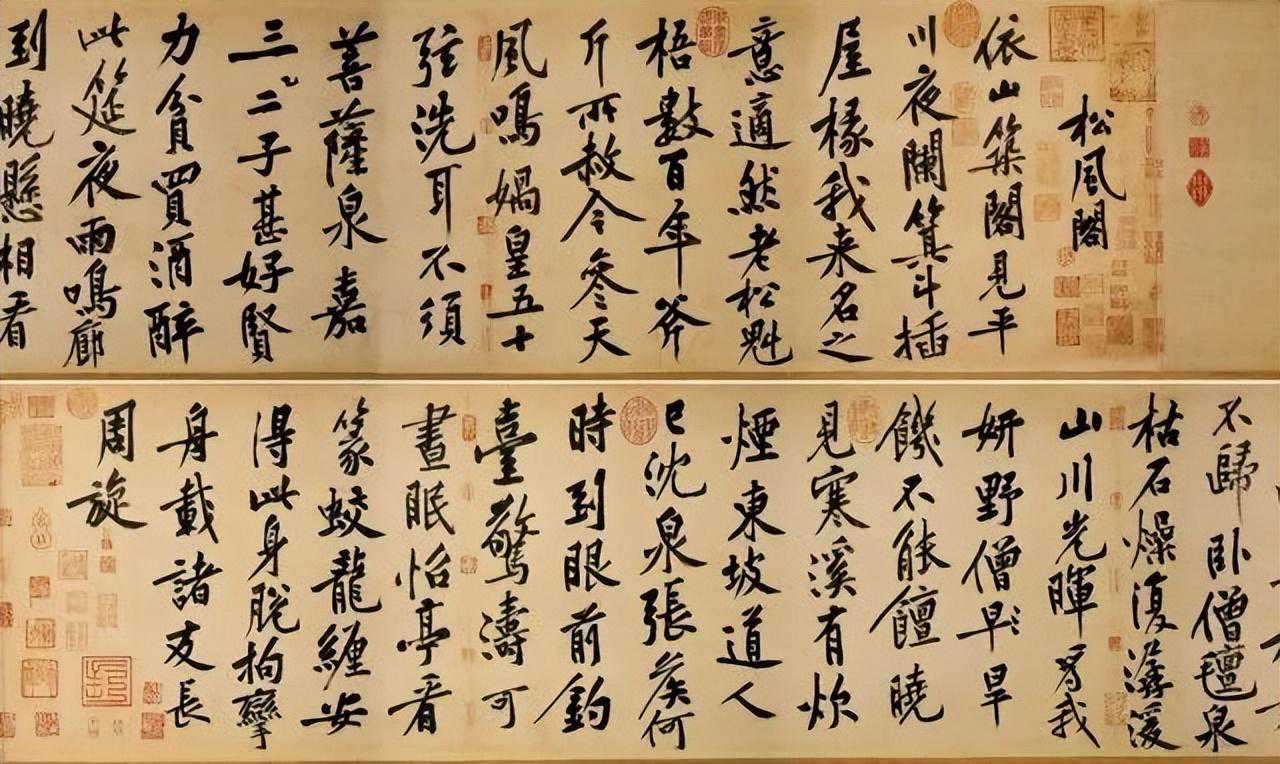 松風閣
依山築閣見平
川夜闌箕斗插
屋椽我来名之
意適然老松魁
梧數百年斧
斤所赦今參天
風鳴媧皇五十
弦洗耳不須
菩薩泉嘉
三二子甚好賢
力貧買酒醉
此筵夜雨鳴廊
到曉懸相看
不歸臥僧氈泉
枯石燥復潺湲
山川光暉為我
妍野僧早旱
饑不能饘曉
見寒溪有炊
煙東坡道人
已沈泉張矦何
時到眼前釣
臺驚濤可
晝眠怡亭看
篆蛟龍纏安
得此身脫拘攣
舟載諸友長
周旋